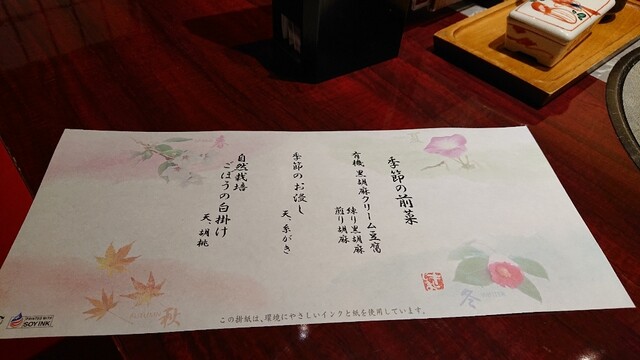 季節の前菜
有機 黒胡麻クリーム豆腐
練り黒胡麻
煎り胡麻
季節のお浸し
天、糸がき
自然栽培
ごぼうの白掛け
天、胡桃
春
秋
冬
AUTUMN
この掛紙は、環境にやさしいインクと紙を使用しています。
SOY INK